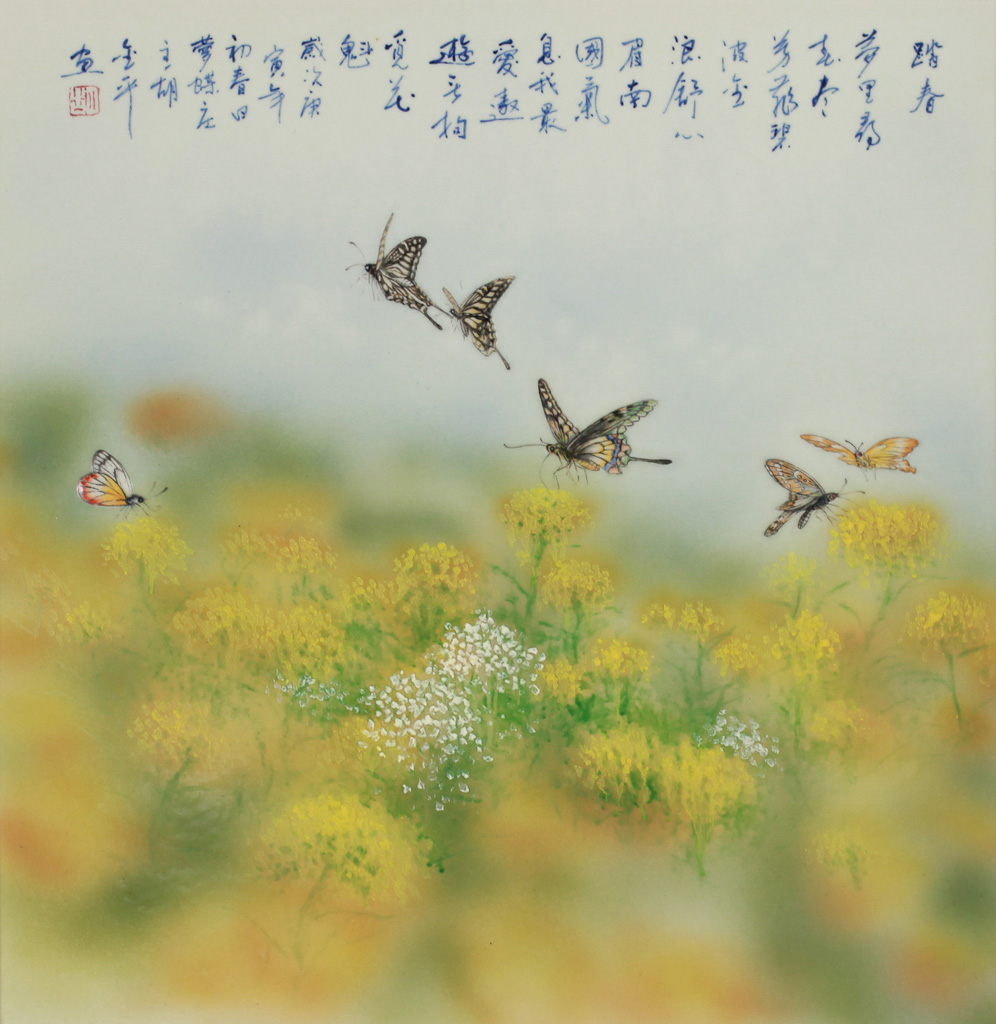 踏春
夢里尋
春尽
芳菲碧
波金
浪舒心
眉南
國氣
息我最
愛遨
遊无拘
覓花
魁
歲次庚
寅年
初春日
夢蝶庄
主胡
金平
画